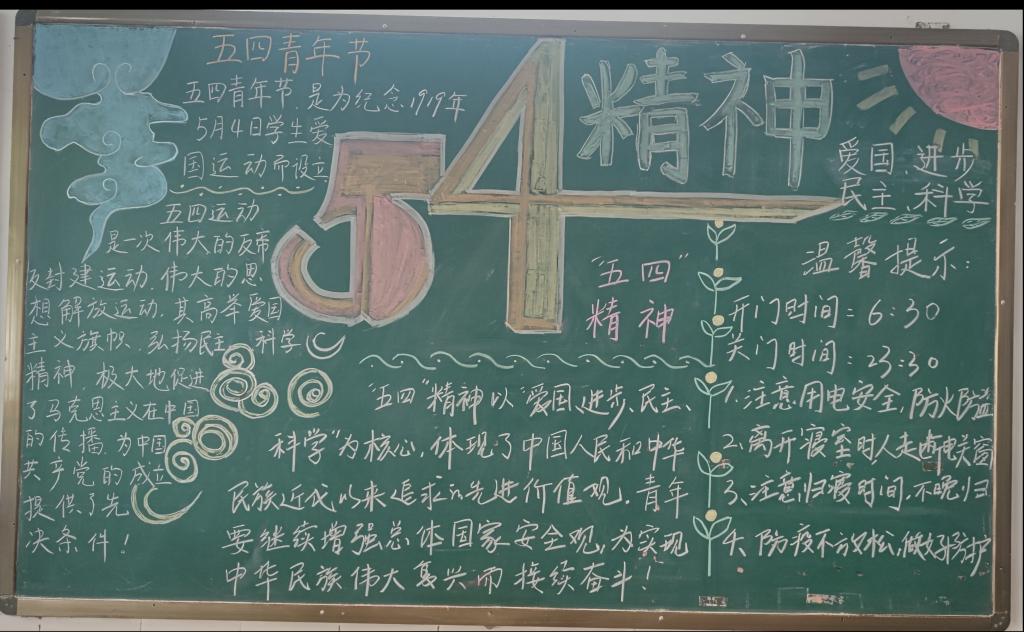 五四青年节
五四青年节,是为纪念1919年
5月4日学生爱
国运动而设立
五四运动
是一次伟大的反帝
反封建运动,伟大的思
想解放运动,其高举爱国
主义旗帜,弘扬民主、科学
精神,极大地促进
了马克思主义在中国
的传播,为中国
共产党的成立
提供了先
决条件!
54精神
爱国、进步
民主、科学
"五四"
精神
"五四"精神以"爱国、进步、民主、
科学"为核心,体现了中国人民和中华
民族近代以来追求的先进价值观,青年
要继续增强总体国家安全观,为实现
中华民族伟大复兴而接续奋斗!
温馨提示:
开门时间:6:30
关门时间:23:30
1、注意用电安全,防火防盗
2、离开寝室时人走断电关窗
3、注意归寝时间,不晚归
4、防疫不放松,做好防护